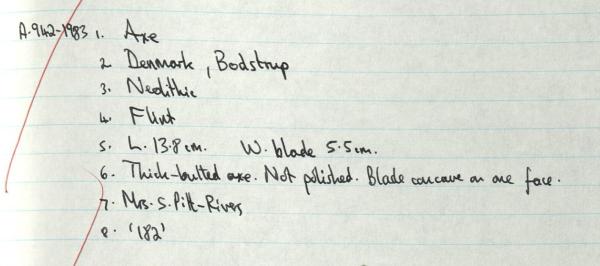 A.942-1983 1. Axe
2. Denmark, Bodstrup
3. Neolithic
4. Flint
5. L. 13.8 cm. W. blade 5.5 cm.
6. Thick-butted axe. Not polished. Blade concave on one face.
7. Mrs. S. Pitt-Rivers
8. '182'